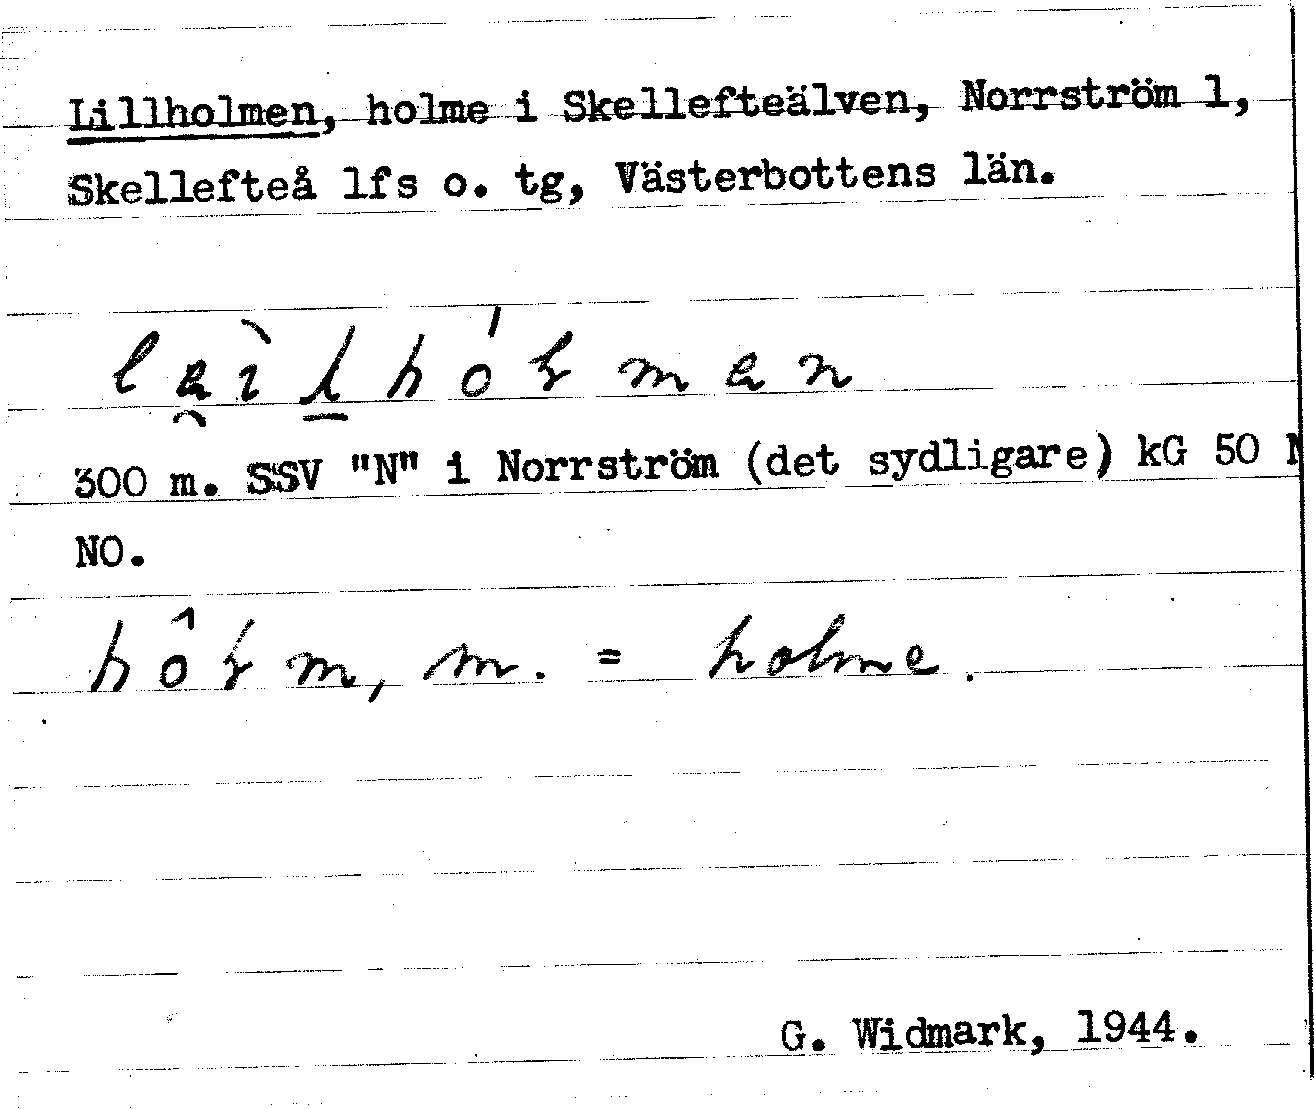 Lillholmen, holme i Skellefteälven, Norrström 1,
Skellefteå lfs o. tg, Västerbottens län.
300 m. SSV "N" i Norrström (det sydligare) kG 50 N
NO.
hôɽm, m. = holme.
G. Widmark, 1944.